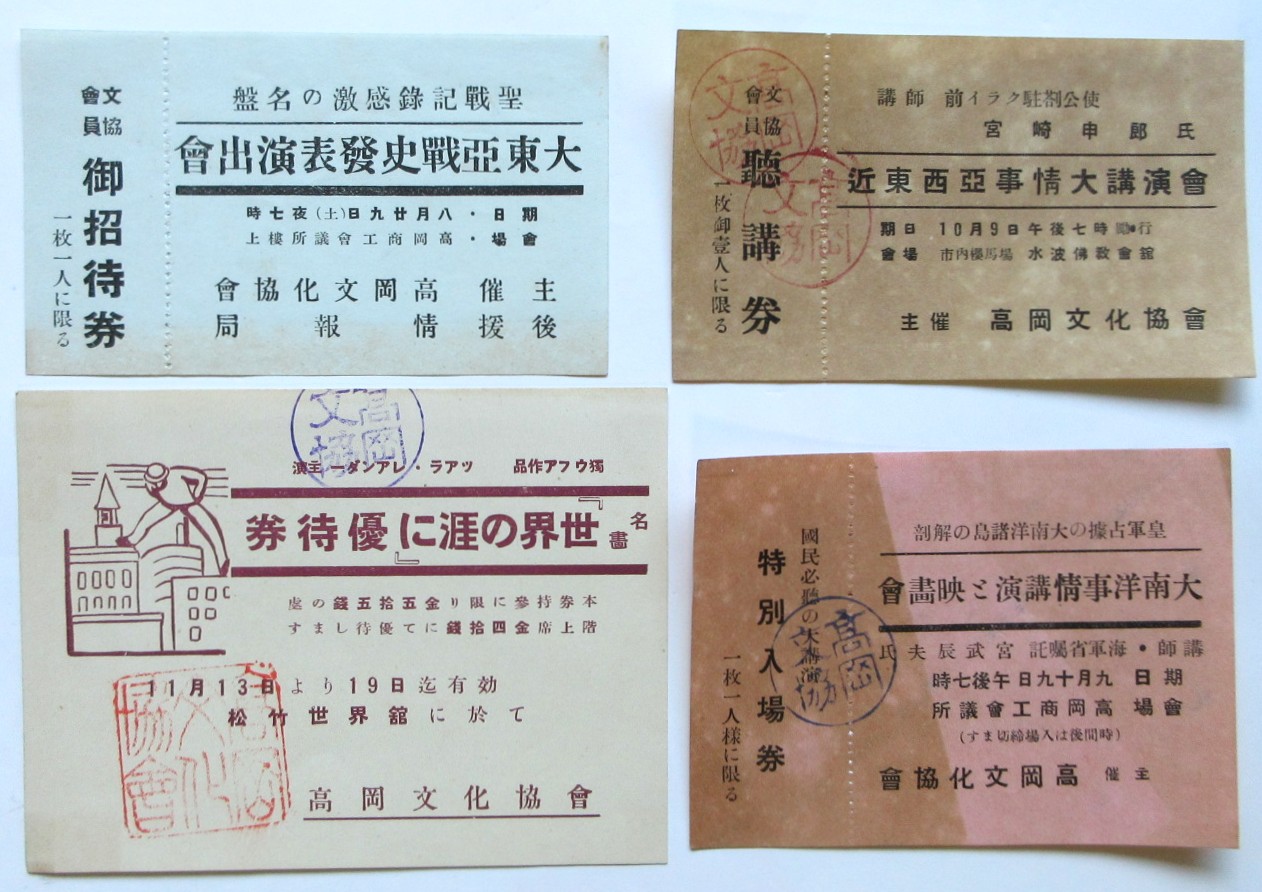 聖戰記錄感激の名盤
大東亞戰史發表演出會
期日・八月廿九日(土)夜七時
會場・高岡商工會議所樓上
主催 高岡文化協會
後援 情報局
文協會員
御招待券
一枚一人に限る
講師 前イラク駐剳公使
宮崎申郎氏
近東西亞事情大講演會
期日 10月9日午後七時 行
會場 市内櫻馬場 水波佛敎會舘
主催 高岡文化協會
文協會員
聽講券
一枚御壹人に限る
高岡文協
高岡文協
高岡文協
獨ウフア作品 ツアラ・レアンダー主演
名畫『世界の涯に』優待券
本券持參に限り金五拾五錢の處
階上席金四拾錢にて優待します
11月13日より19日迄有効
松竹世界舘に於て
高岡文化協會
高岡文化協會
皇軍占據の大南洋諸島の解剖
大南洋事情講演と映畫會
講師・海軍省囑託 宮武辰夫氏
期日 九月十九日午後七時
會場 高岡商工會議所
(時間後は入場締切ます)
主催 高岡文化協會
國民必聽の大講演
特別入場券
一枚一人樣に限る
高岡文協